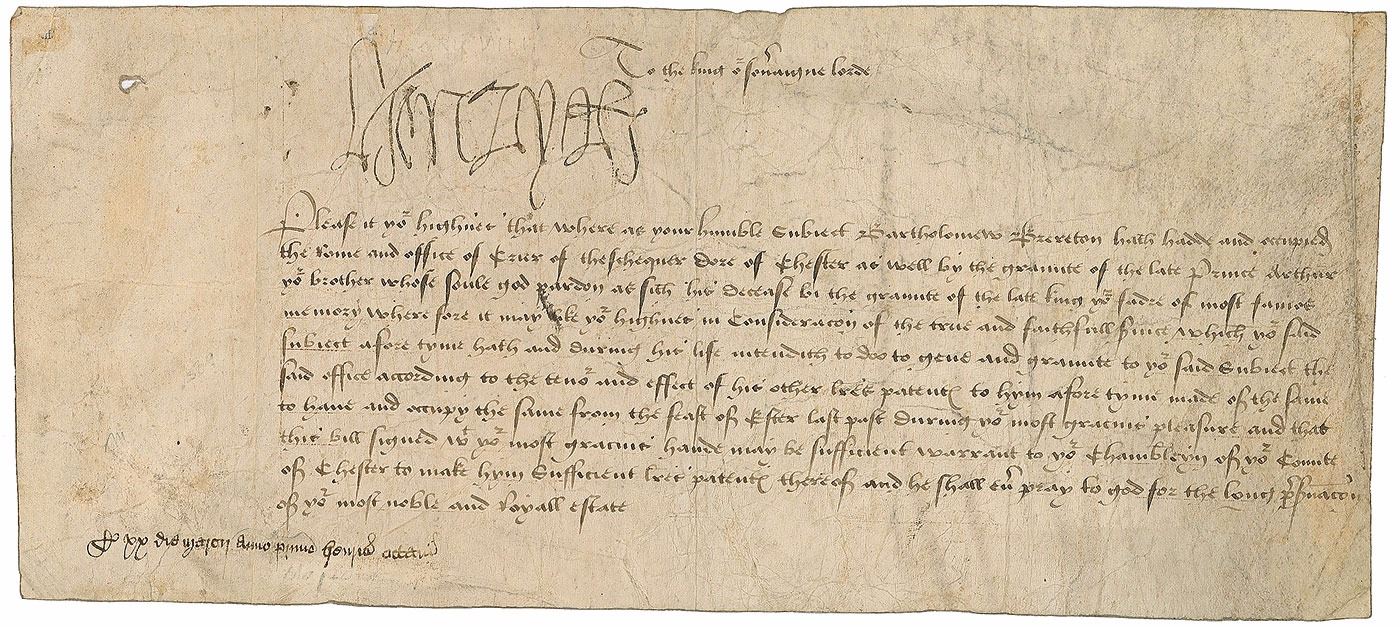 To the king oʳ soũaigne lorde
Henry R
Please it yoʳ highnes that where as your humble Subiect Bartholomew Brereton hath hadde and occupied
the rome and office of Crier of theschequer dore of Chester as well by the graunte of the late Prince Arthur
yoʳ brother whose soule god pardon as sith his decease bi the graunte of the late king yoʳ fadre of most famos
memory where fore it may like yoʳ highnes in Consideracon of the true and faithfull ſuice which yoʳ said
subiect afore tyme hath and during his life intendith to doo to geue and graunte to yoʳ said Subiect the
said office according to the tenoʳ and effect of his other lres patent to hym afore tyme made of the same
to haue and occupy the same from the feast of Ester last past during yoʳ most gracius pleasure and that
this bill signed wᵗ yoʳ most gracius hande may be sufficient warrant to yoʳ Chambleyn of yoʳ Countie
of Chester to make hym Sufficient lres patent thereof and he shall eũ pray to god for the long pſuacon
of yoʳ most noble and Royall estate
xx die anno primo henrici octaui